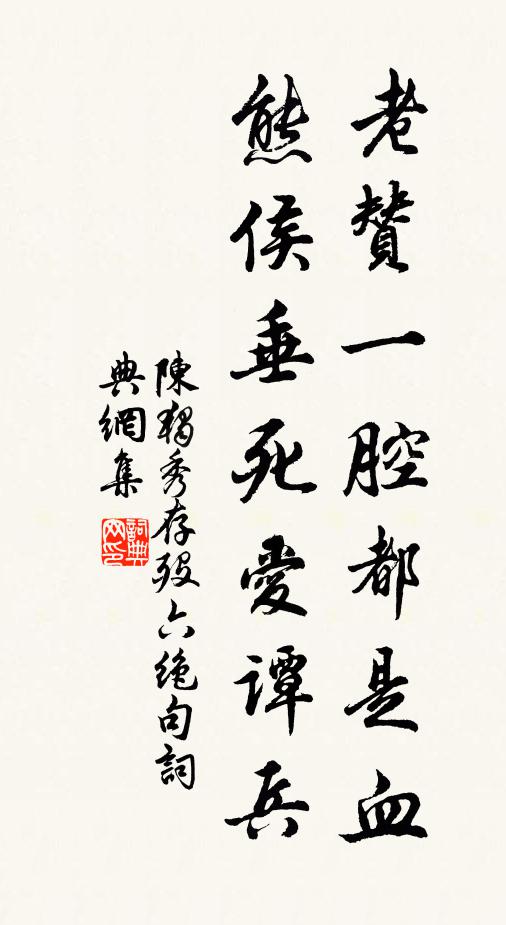 老贊一腔都是血
熊侯垂死愛譚兵
陳獨秀存歿六絕句詞
典網集
詞典網印